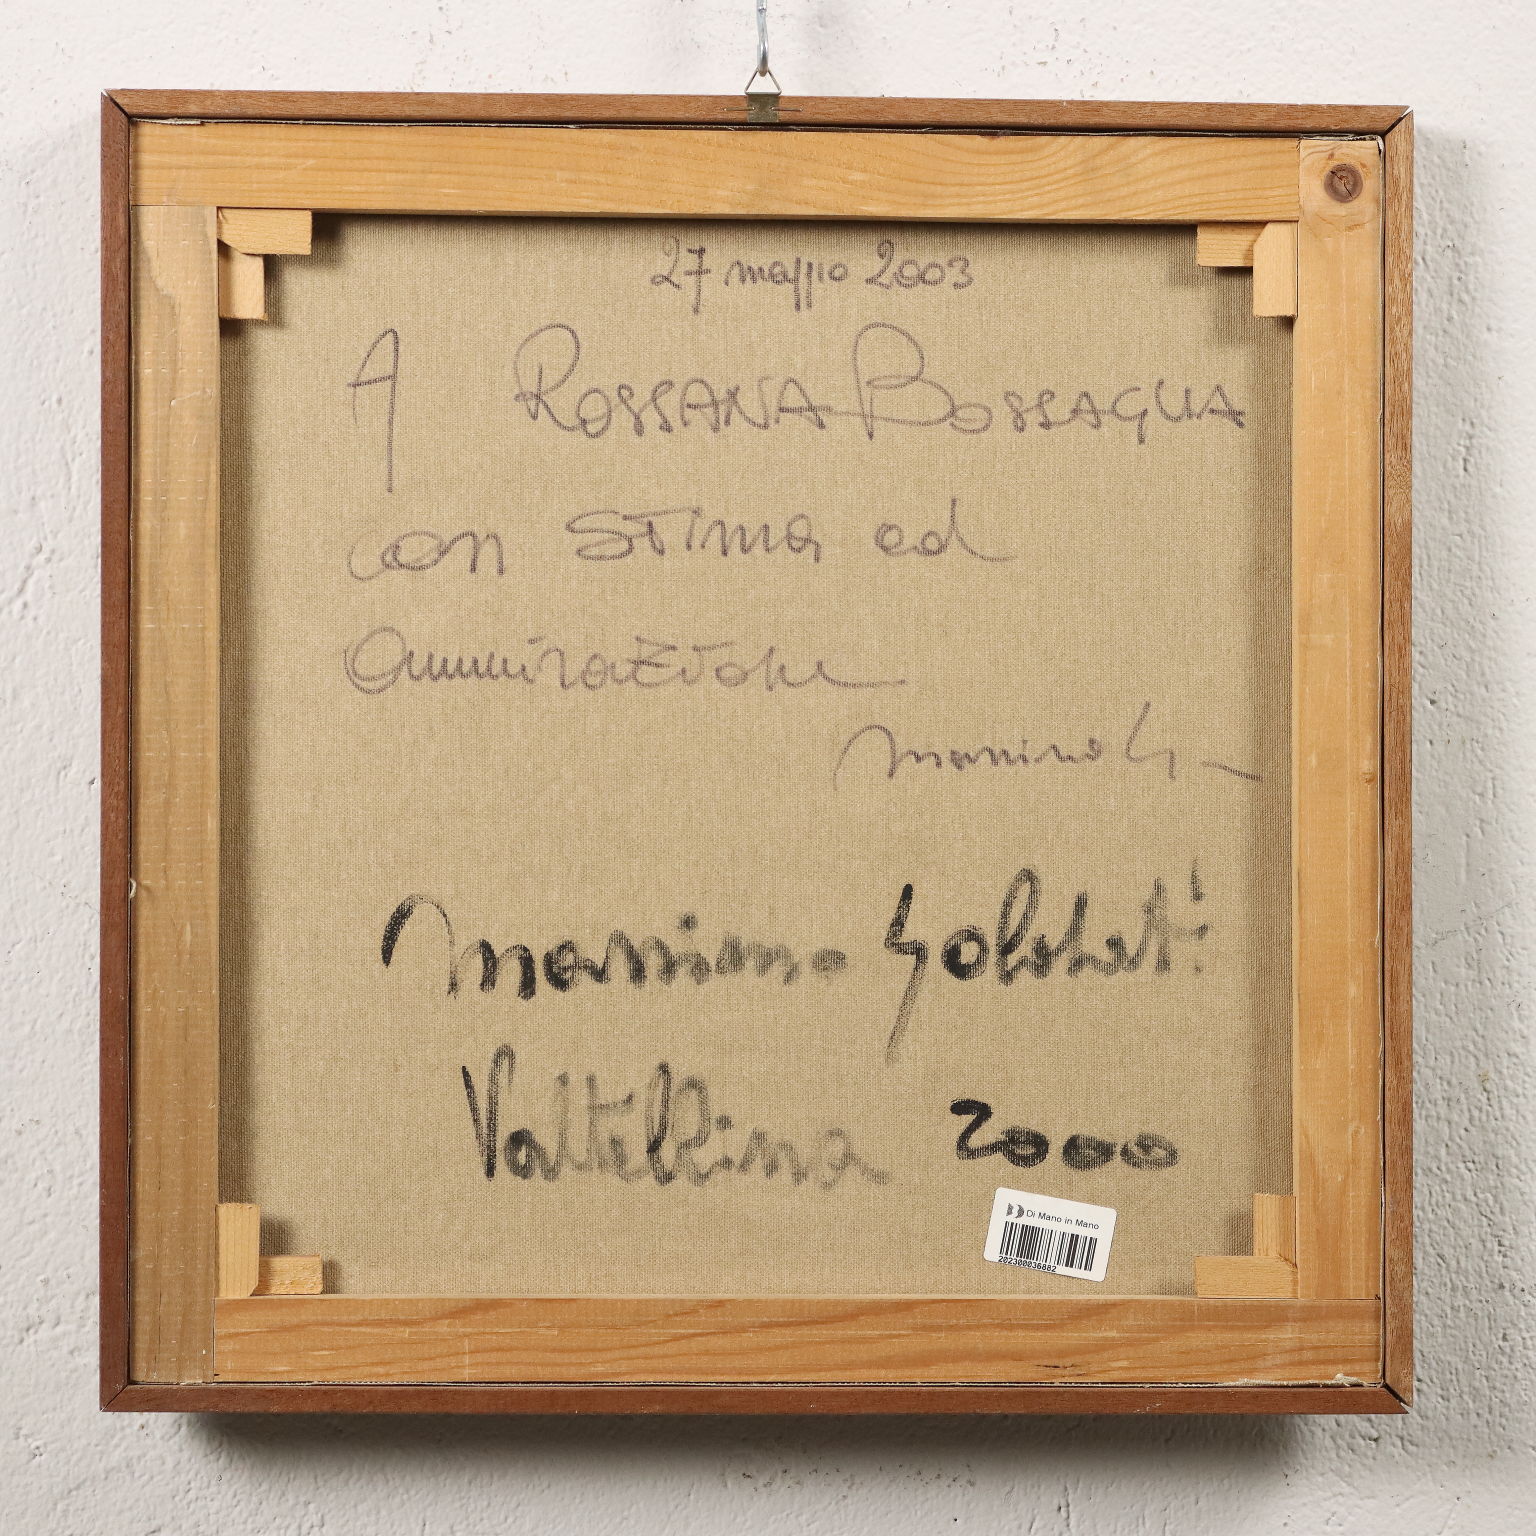 27 maggio 2003
A ROSSANA BOSSAGLIA
con stima ed
ammirazione
Massimo G
Massimo
Valtellina 2000
Di Mano in Mano
202300036882